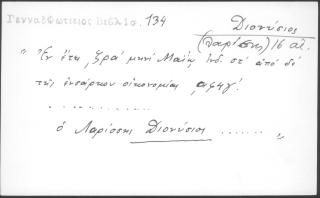 Γενναδ<s></s>ειος Βιβλιοθ. 134
Διονύσιος
(Λαρίσης) 16 αἰ.
"Ἐν ἔτει ͵ζρα' μηνὶ Μαΐῳ Ἰνδ. στ' ἀπὸ δὲ
τῆς ἐνσάρκου οἰκονομίας ͵αφϟγ'.
. . . . . . . . . . . .
ὁ Λαρίσσης Διονύσιος . . . . . . "